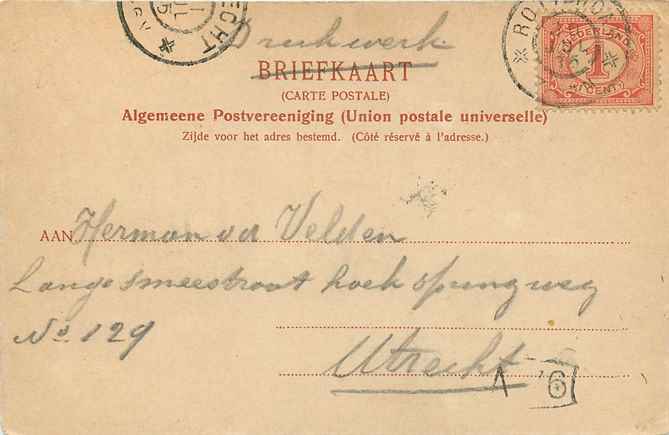 Drukwerk
BRIEFKAART
(CARTE POSTALE)
Algemeene Postvereeniging (Union postale universelle)
Zijde voor het adres bestemd. (Côté réservé à l'adresse.)
AAN Herman vd Velden
Lange smeestraat hoek springweg
No 129
Utrecht
NEDERLAND
1
CENT
6